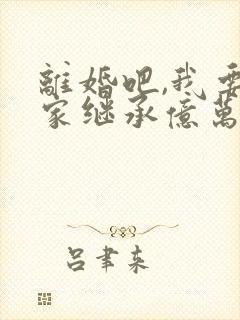 離婚吧,我要
家继承億萬
吕聿来